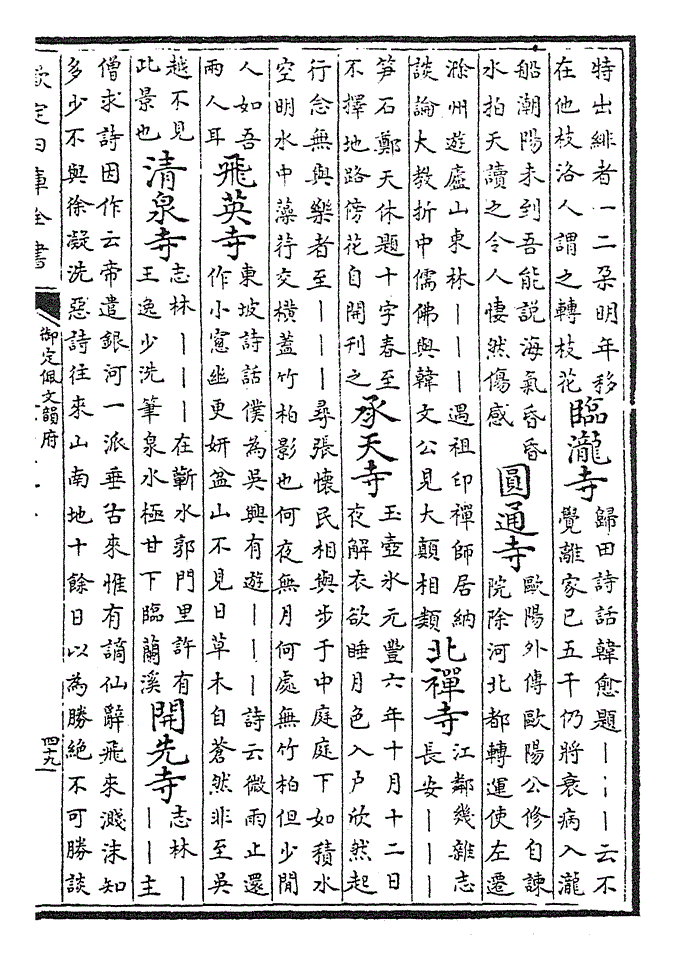 特出緋者一二朶明年移
在他枝洛人謂之轉枝花
臨瀧寺
歸田詩話韓愈題丨丨丨云不
覺離家已五千仍將衰病入瀧
船潮陽未到吾能説海氣昏昏
水拍天讀之令人悽然傷感
圓通寺
歐陽外傳歐陽公修自諫
院除河北都轉運使左遷
滁州遊廬山東林丨丨丨遇祖印禪師居納
談論大教折中儒佛與韓文公見大顛相類
北禪寺
江鄰幾雜志
長安丨丨丨
笋石鄭天休題十字春至
不擇地路傍花自開刊之
承天寺
玉壺氷元豐六年十月十二日
夜解衣欲睡月色入户欣然起
行念無與樂者至丨丨丨尋張懷民相與步于中庭庭下如積水
空明水中藻荇交橫蓋竹柏影也何夜無月何處無竹柏但少閒
人如吾
兩人耳
飛英寺
東坡詩話僕為吳興有遊丨丨丨詩云微雨止還
作小窻幽更妍盆山不見日草木自蒼然非至吳
越不見
此景也
清泉寺
志林丨丨丨在蘄水郭門里許有
王逸少洗筆泉水極甘下臨蘭溪
開先寺
志林丨
丨丨主
僧求詩因作云帝遣銀河一派垂古來惟有謫仙辭飛來濺沫知
多少不與徐凝洗惡詩往來山南地十餘日以為勝絶不可勝談
欽定四庫全書
御定佩文韻府
四十九